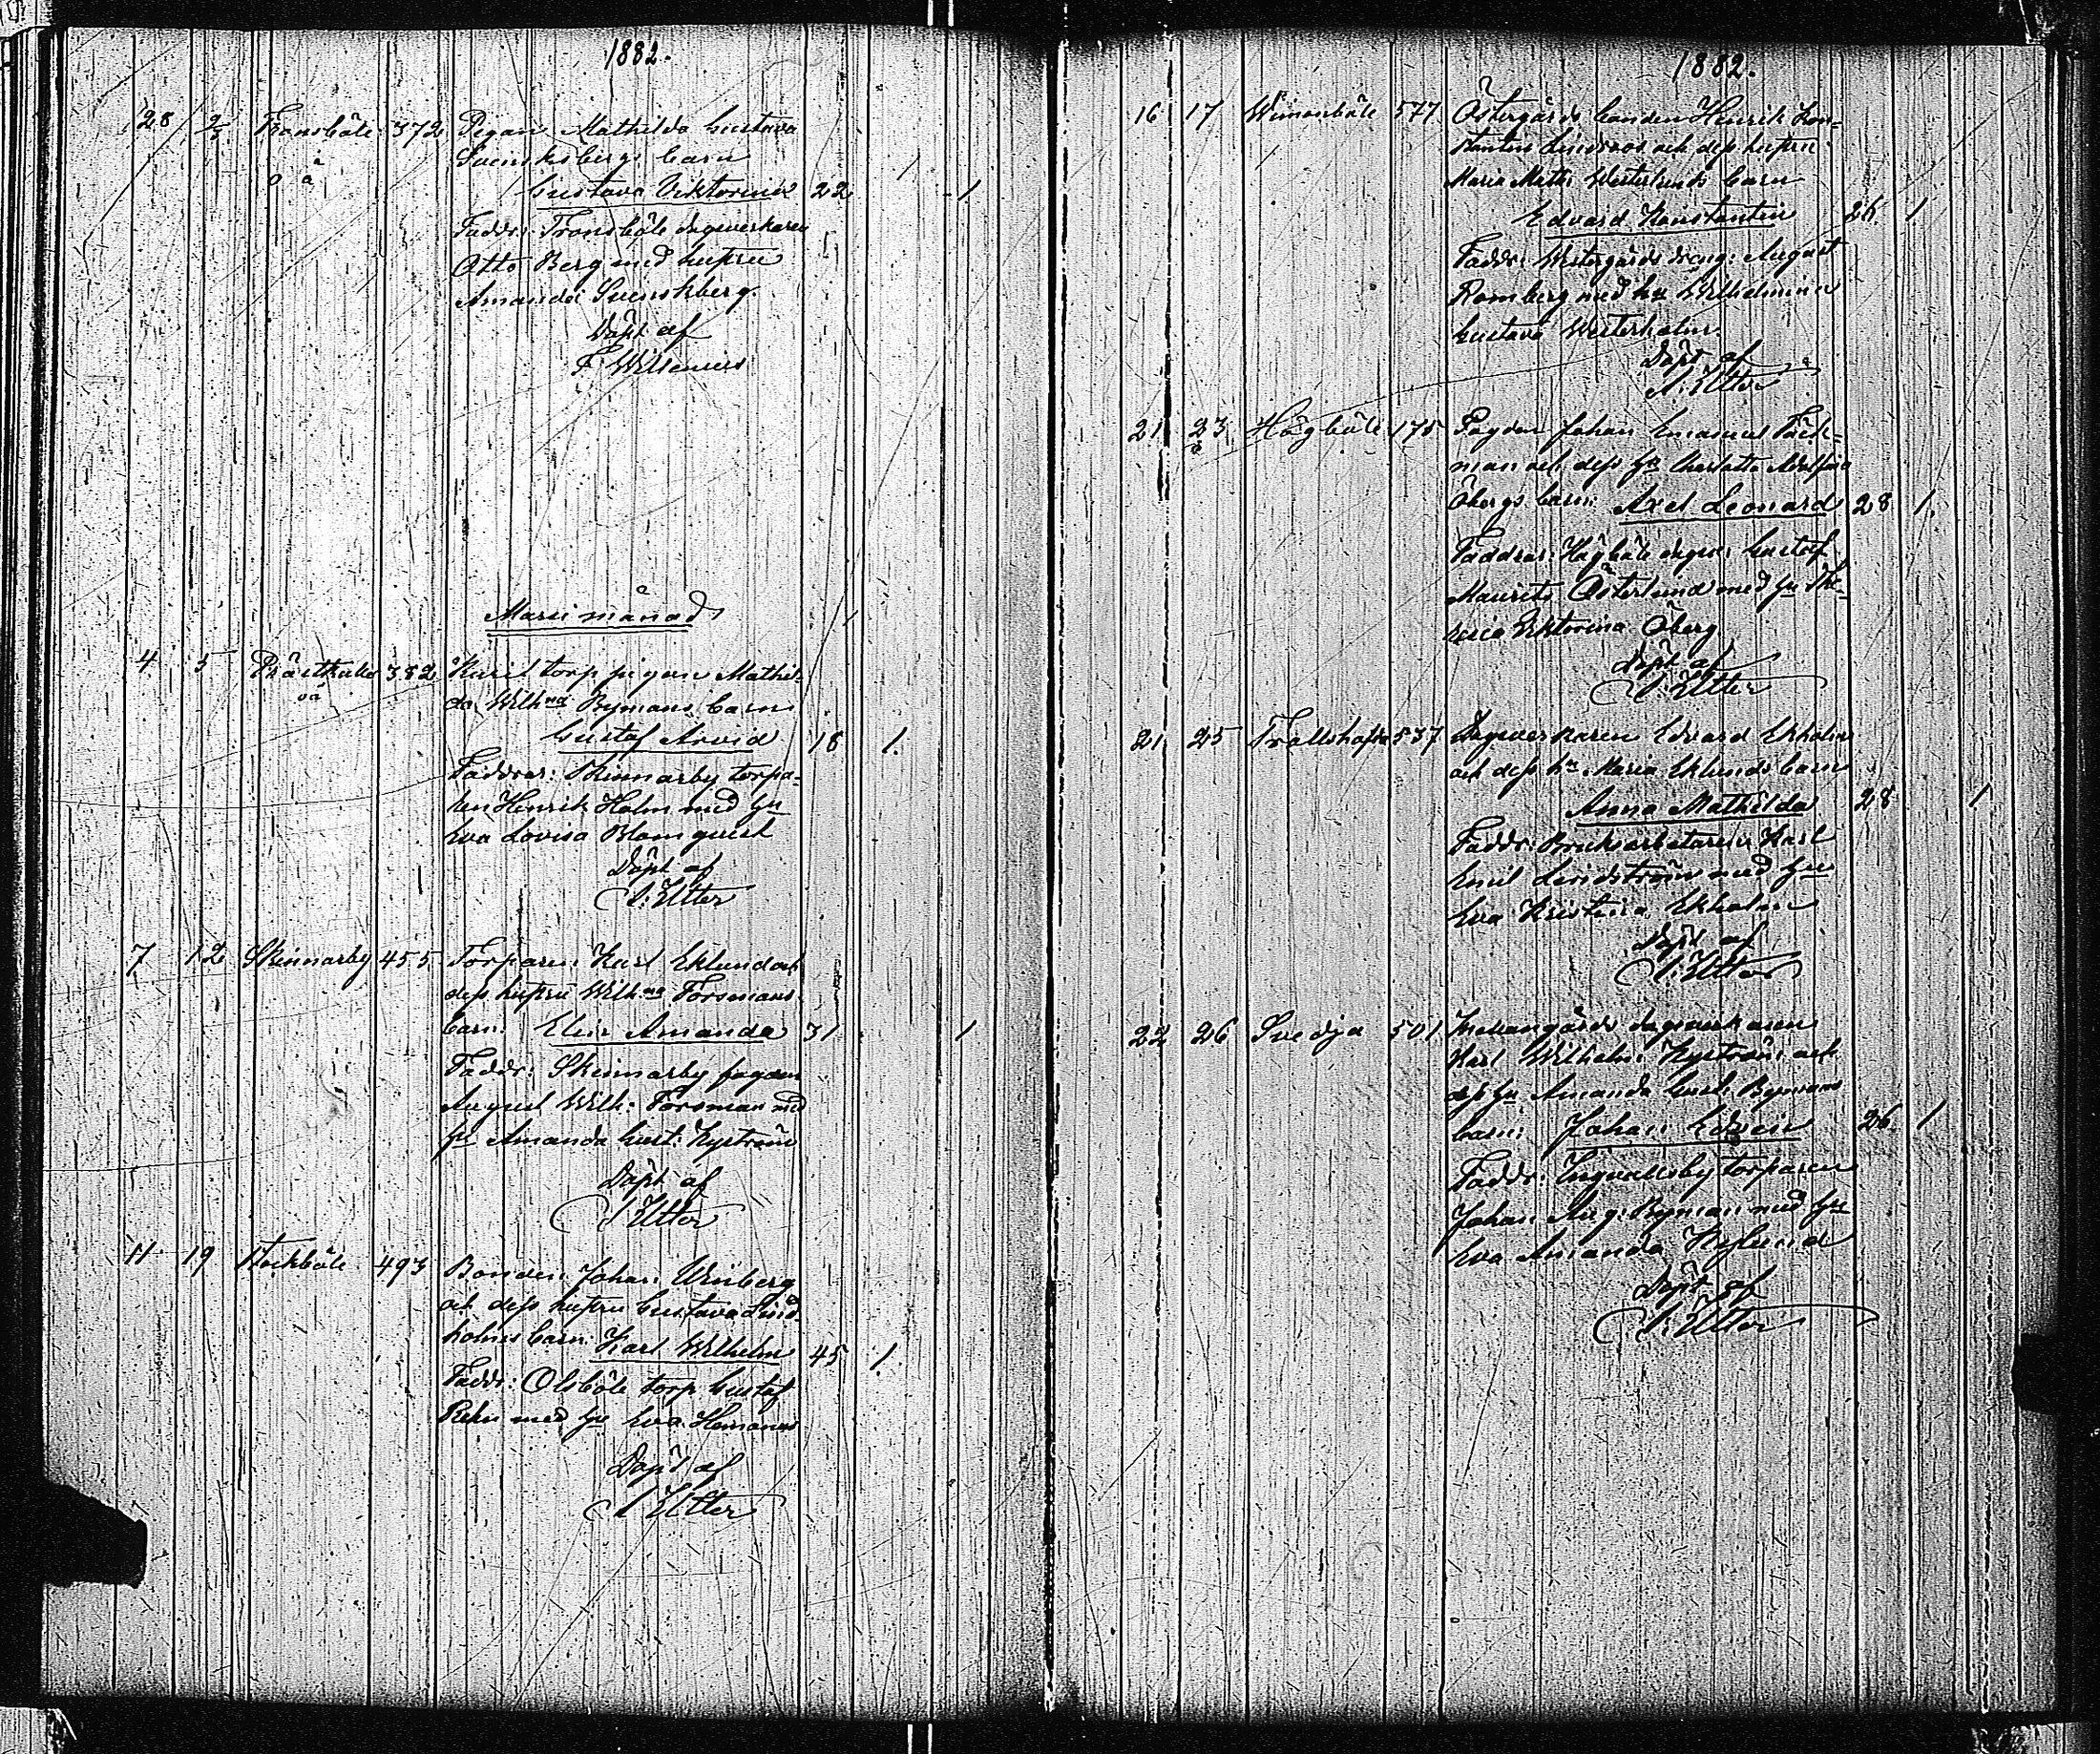 1882.
28 2/3 Tronsböle 372 Pigan Mathilda Gustava
Svenskbergs barn
o ä Gustava Viktorina 22 1.
Faddr: Tronsböle dagsverkaren
Otto Berg med hustru
Amanda Svenskberg.
Döpt af
F. Willenius
Mars månad
4 5 Prästkulla 382 torp pigan Mathil-
oä da Wilhna Bymans barn
Gustaf Arvid 18 1.
Faddrar: Skinnarby torpa-
ren Henrik Holm med hu
Eva Lovisa Blomqvist
Döpt af
Utter
7 12 Skinnarby 455 Torparen Karl Eklund och
dess hustru Wilhna Forsmans
barn: Elin Amanda 31 1
Faddr: Skinnarby fogden
August Wilh: Forsman med
hu Amanda Gust: Nyström
Döpt af
Utter
11 19 Stockböle 493 Bonden Johan Winberg
och dess hustru Gustava Lind-
holms barn: Karl Wilhelm 45 1.
Faddr: Olsböle torp Gustaf
med hu Eva
Döpt af
Utter
1882.
16 17 577 Östergårds bonden Henrik Kon-
stantin Lindroos och dess hustru
Maria Math: Westerlunds barn
Edvard Konstantin 26. 1
Faddr: Westergårds dräng: August
Romberg med hu Wilhelmina
Gustava Westerholm.
Döpt af
Utter
21 23 Högböle 175 Fogden Johan Emanuel Fäck-
man och dess hu Charlotta Adolfina
Öbergs barn: Axel Leonard 28 1.
Faddrar: Högböle dagsv: Gustaf
Maurits Österlund med hu The-
resia Viktorina Öberg
Döpt af
Utter
21 25 Trollshofda 537 Dagsverkaren Edvard Ekholm
och dess hu Maria Eklunds barn
Anna Mathilda 28 1
Faddr: Bruksarbetaren Karl
Emil Lindström med hu
Eva Kristina Ekholm
Döpt af
Utter
22 26 Svedja 501 Mellangårds dagsverkaren
Karl Wilhelm Nyström och
dess hu Amanda Gust: Bymans
barn: Johan Edvin 26. 1
Faddr: Ingvallsby torparen
Johan Aug: Byman med hu
Eva Amanda Nylund
Döpt af
Utter